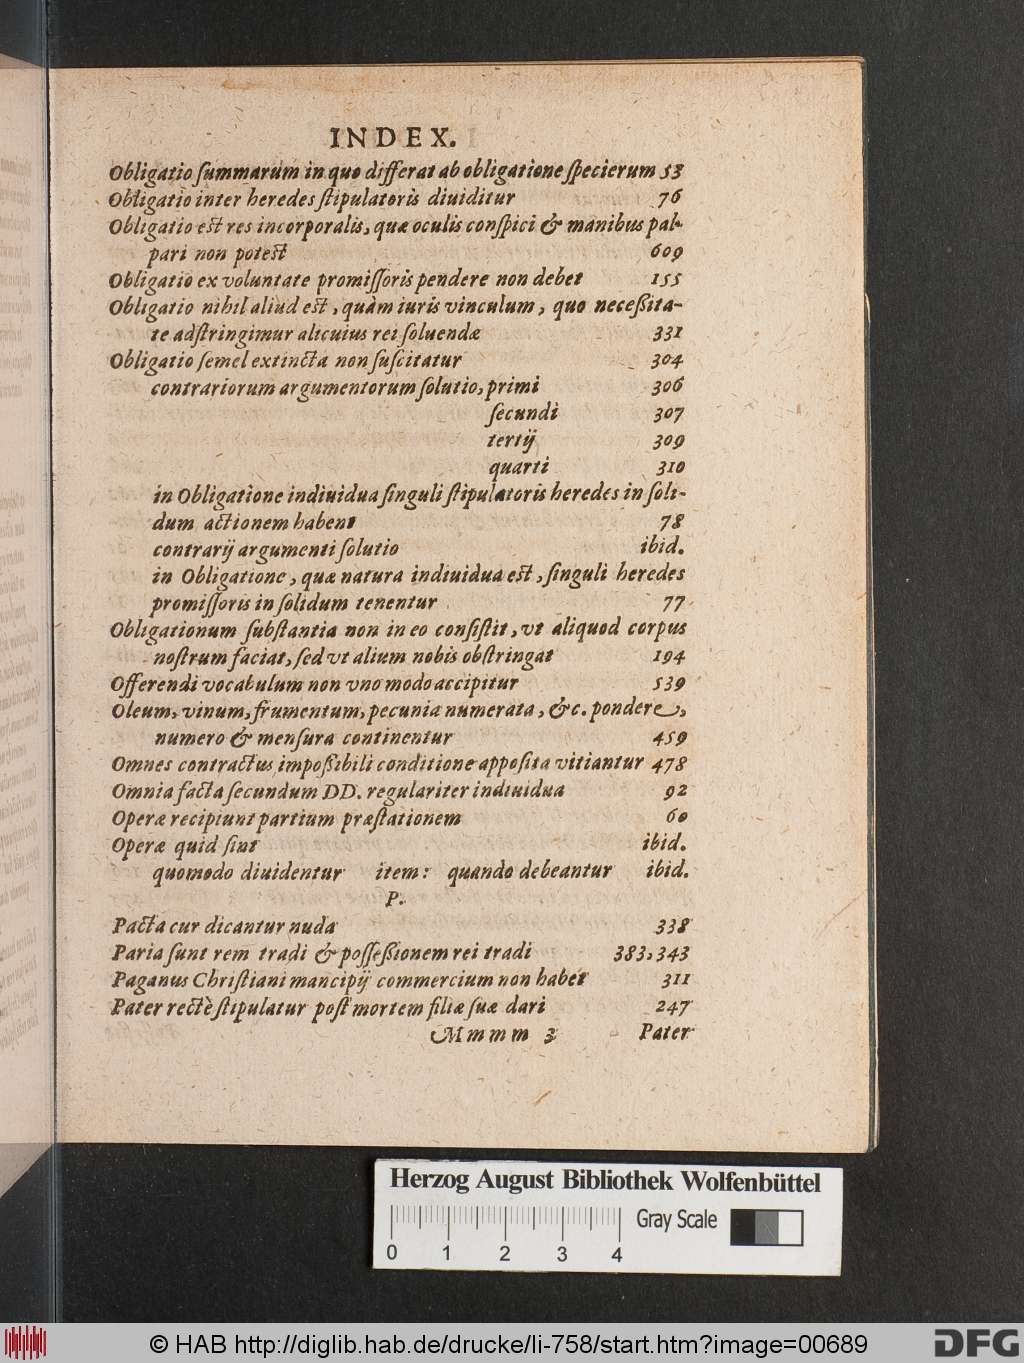 INDEX.
Obligatio ſummarum in quo differat ab obligatione ſpecierum 53
Obligatio inter heredes ſtipulatoris diuiditur 76
Obligatio est res incorporalis, quæ oculis conſpici & manibus pal-
pari non potest 609
Obligatio ex voluntate promiſſoris pendere non debet 155
Obligatio nihil aliud est, quàm iuris vinculum, quo neceßita-
te adſtringimur alicuius rei ſoluendæ 331
Obligatio ſemel extincta non ſuſcitatur 304
contrariorum argumentorum ſolutio, primi 306
ſecundi 307
tertij 309
quarti 310
in Obligatione indiuidua ſinguli ſtipulatoris heredes in ſoli-
dum actionem habent 78
contrarij argumenti ſolutio ibid.
in Obligatione, quæ natura indiuidua est, ſinguli heredes
promiſſoris in ſolidum tenentur 77
Obligationum ſubſtantia non in eo conſiſtit, vt aliquod corpus
noſtrum faciat, ſed vt alium nobis obſtringat 194
Offerendi vocabulum non vno modo accipitur 539
Oleum, vinum, frumentum, pecunia numerata, &c. pondere,
numero & menſura continentur 459
Omnes contractus impoßibili conditione appoſita vitiantur 478
Omnia facta ſecundum DD. regulariter indiuidua 92
Operæ recipiunt partium præſtationem 60
Operæ quid ſint ibid.
quomodo diuidentur item: quando debeantur ibid.
P.
Pacta cur dicantur nuda 338
Paria ſunt rem tradi & poſſeßionem rei tradi 383, 343
Paganus Chriſtiani mancipij commercium non habet 311
Pater rectè ſtipulatur poſt mortem filiæ ſuæ dari 247
Mmmm 3 Pater
Herzog August Bibliothek Wolfenbüttel
Gray Scale
0 1 2 3 4
© HAB http://diglib.hab.de/drucke/li-758/start.htm?image=00689
DFG